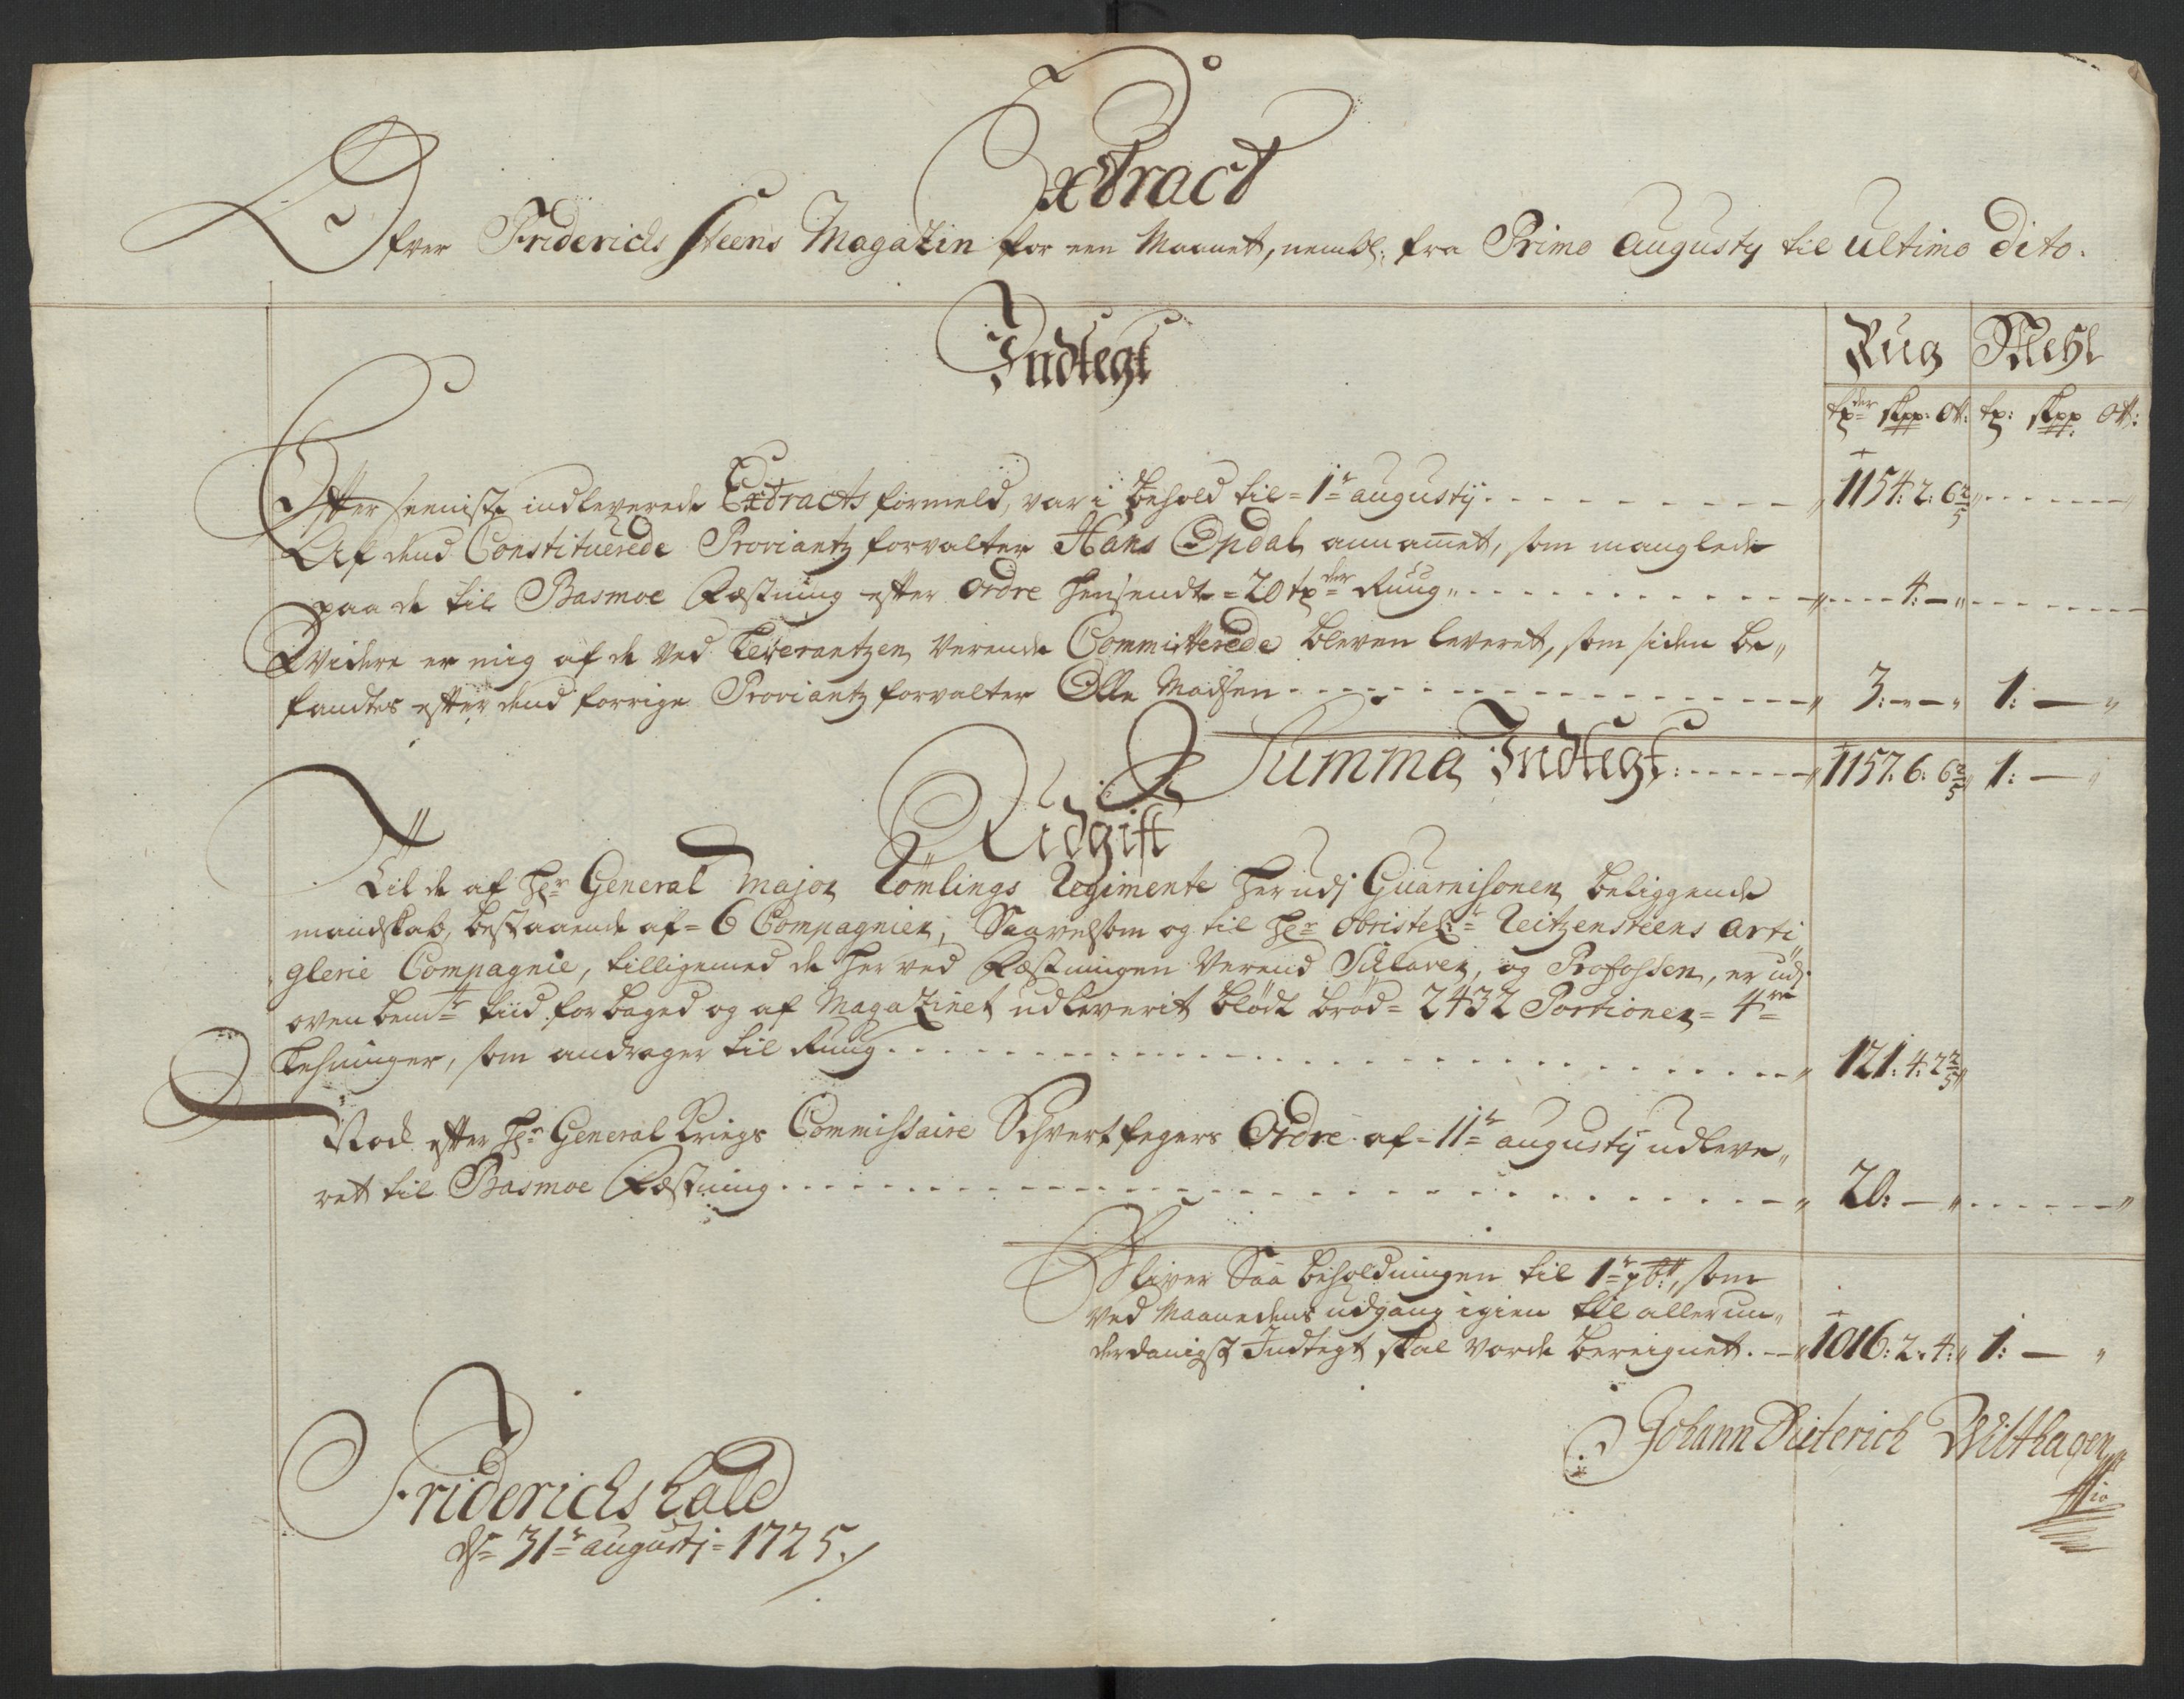 Extract
Ofver Friderichs Steens Magazin for een Maanet, nembl: fra Primo Augustij til ultimo dito.
Indtegt
Rug Mehl
tp:der skpp: ot: tp: skpp ot:
Efter seeniste indleverede Extracts formeld, var i behold til = 1te augustij 1154: 2: 6 2/5
Af dend Constituerede Proviantz forvalter Hans Opdal annammet, som manglede
paa de til Basmoe Fæstning efter ordre hensendte = 20 tp:der Ruug 4: —
Widere er mig af de ved Leverantzen verende Committerede bleven leveret, som siden be„
fandtes efter dend forrige Proviantz forvalter Olle Madsen 3: — — 1: —
Summa Indtegt: 1157: 6: 6 2/5 1: —
Udgift
Til de af Hr General Major Römlings Regimente her udj Guarnisonen beliggende
mandskab, bestaaende af = 6 Compagnier, Saavelsom og til Hr Obristel:t Reitzensteens Arti
glerie Compagnie, tilligemed de her ved Fæstningen verend Sclaver, og Profossen, er udj
oven bemte tiid forbaged og af Magazinet udleverit blödt bröd = 2432 Portioner = 4re
Lehninger, som andrager til Ruug 121: 4: 2 2/5
Nock efter Hr General Kriegs Commissaire Schvertfegers Ordre af = 11te augustij udleve„
ret til Basmoe Fæstning 20: —
Bliver Saa beholdningen til 1te 7br:, som
ved Maanedens udgang igien til allerun„
derdanigst Indtegt skal vorde bereignet. 1016: 2: 4: 1: —
Johann Dieterich Wilthagen
Friderichshald
d: 31te augustj = 1725.